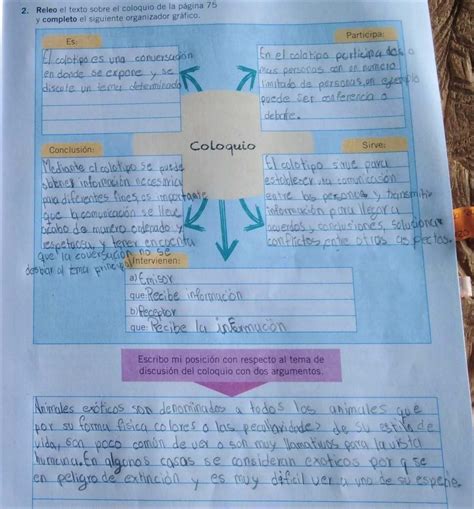 2. Releo el texto sobre el coloquio de la página 75
y completo el siguiente organizador gráfico.
Es:
El colotipo es una conversación
en donde se expone y se
discute un tema determinado
Participa:
En el colotipo participa dos o
mas personas con un numero
limitado de personas, un ejemplo
puede ser conferencia o
debate.
Coloquio
Conclusión:
Mediante el colotipo se puede
obtener información necesaria
para diferentes fines, es importante
que la comunicación se lleve
acabo de manera ordenada y
respetuosa y tener en cuenta
que la coversación no se
desbie al tema principal
Sirve:
El colotipo sirve para
establecer una comunicación
entre las personas y transmitir
información para llegar a
acuerdos y conclusiones, solucionar
conflictos entre otros aspectos.
Intervienen:
a) Emisor
que: Recibe información
b) Receptor
que: Recibe la información
Escribo mi posición con respecto al tema de
discusión del coloquio con dos argumentos.
Animales exóticos son denominados a todos los animales que
por su forma física colores o las peculiaridades de su estilo de
vida, son poco común de ver o son muy llamativos para la vista
humana. En algunos casos se consideran exoticos por q se
en peligro de extinción y es muy dificil ver a uno de su especie.